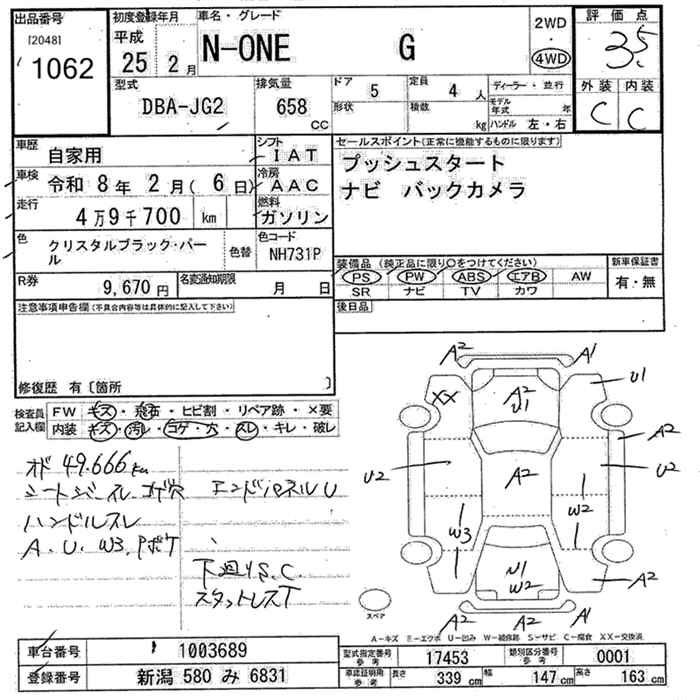 出品番号
[2048]
1062
初度登録年月
平成
25 2月
車名・グレード
N-ONE G
2WD
4WD
評価点
3.5
外装 内装
C C
型式
DBA-JG2
排気量
658 CC
ドア 5
定員 4人
形状
積数 kg
ディーラー・並行
モデル年式 年
ハンドル 左・右
車歴 自家用
シフト IAT
車検 令和 8年 2月(6日)
冷房 AAC
走行 4万9千700 km
燃料 ガソリン
色 クリスタルブラック・パール
色替
色コード NH731P
R券 9,670円
名変通知期限 月 日
セールスポイント(正常に機能するものに限ります)
プッシュスタート
ナビ バックカメラ
装備品 (純正品に限り○をつけてください)
PS PW ABS エアB AW
SR ナビ TV カワ
新車保証書
有・無
後日品
注意事項申告欄(不具合内容等は具体的に記入して下さい)
修復歴 有〔箇所 〕
検査員記入欄
FW キズ・飛石・ヒビ割・リペア跡・×要
内装 キズ・汚レ・コゲ・穴・スレ・キレ・破レ
オド 49.666km
シートシミ・スレ コゲ穴 エンドパネルU
ハンドルスレ
A.U.W3.Pボケ
下廻りS.C.
スタットレスT
A2 A1
U1
XX
A2
U1
A2
U2
A2
U2
W2
W3
U1
W2
A2
A2 A2 A1
スペア
A-キズ E-エクボ U-凹み W-補修跡 S-サビ C-腐食 XX-交換済
車台番号 1003689
登録番号 新潟 580 み 6831
型式指定番号 参考 17453
類別区分番号 参考 0001
車両証明用 参考 長さ 339 cm 幅 147 cm 高さ 163 cm